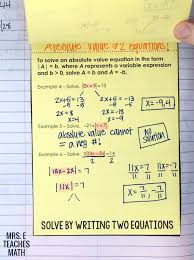 Absolute Value #2 Equations!
To solve an absolute value equation in the form
|A| = b, where A represents a variable expression
and b > 0, solve A = b and A = -b.
Example 4 - Solve. |2x+5|=13
2x+5=13 2x+5=-13
-5 -5 -5 -5
2x=8 2x=-18
x=4 x=-9
X=-9,4
Example 5 - Solve.
absolute value cannot
= a neg #!
No
solution
Example 6 - Solve.
2 2
|13x-2x|=7
|11x|=7
11x=7 11x=-7
11 11 11 11
SOLVE BY WRITING TWO EQUATIONS
MRS. E
TEACHES
MATH